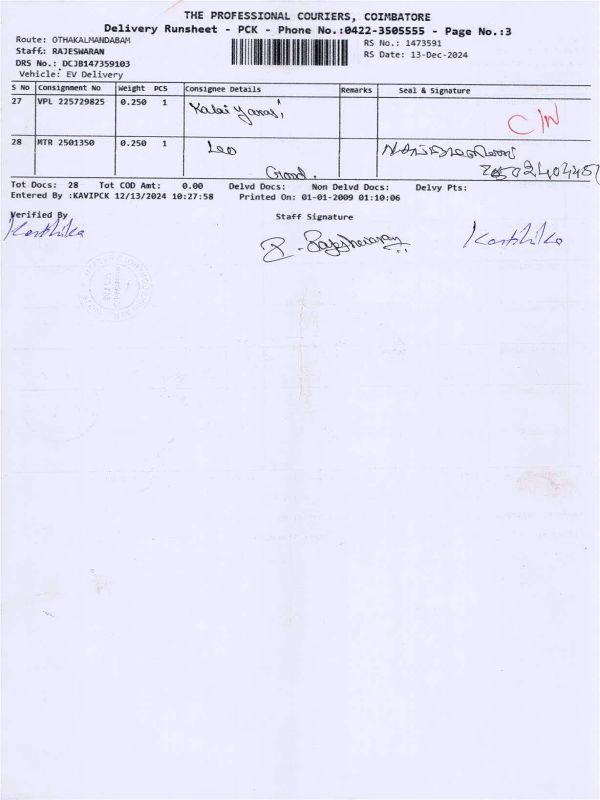 THE PROFESSIONAL COURIERS, COIMBATORE
Delivery Runsheet - PCK - Phone No.:0422-3505555 - Page No.:3
Route: OTHAKALMANDABAM
RS No.: 1473591
Staff: RAJESWARAN
RS Date: 13-Dec-2024
DRS No.: DCJB147359103
Vehicle: EV Delivery
S No Consignment No Weight PCS Consignee Details Remarks Seal & Signature
27 VPL 225729825 0.250 1 Kalai C/N
28 MTR 2501350 0.250 1 Leo
Grand.
Tot Docs: 28 Tot COD Amt: 0.00 Delvd Docs: Non Delvd Docs: Delvy Pts:
Entered By :KAVIPCK 12/13/2024 10:27:58 Printed On: 01-01-2009 01:10:06
Verified By Staff Signature
Karthika Karthika